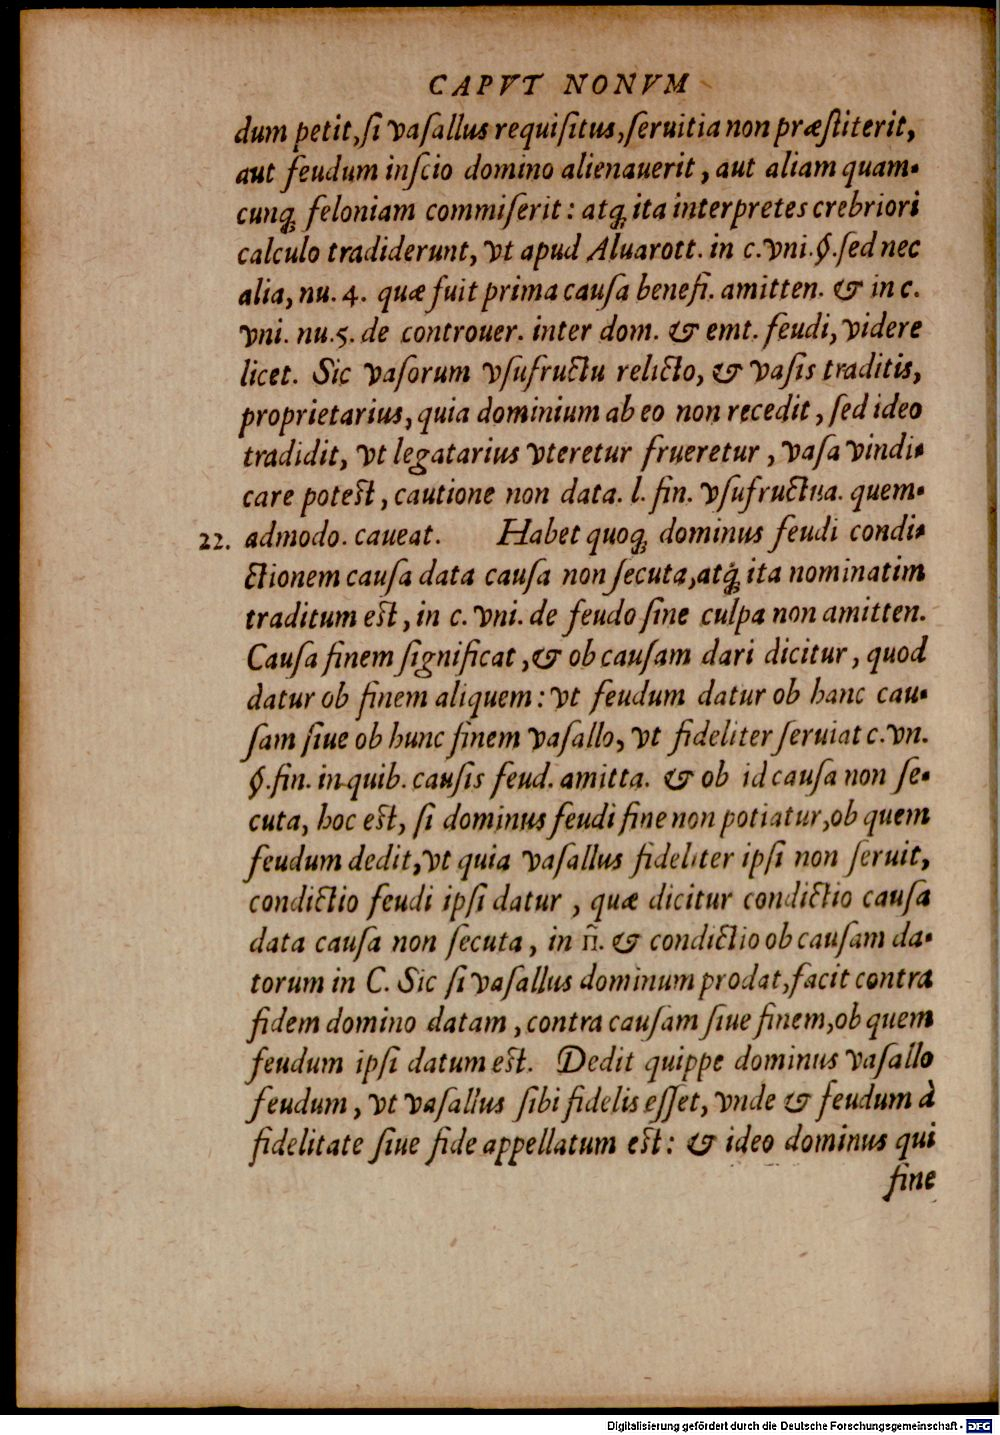 CAPVT NONVM
dum petit, ſi vaſallus requiſitus, ſeruitia non præſtiterit,
aut feudum inſcio domino alienauerit, aut aliam quam-
cunq; feloniam commiſerit: atq; ita interpretes crebriori
calculo tradiderunt, vt apud Aluarott. in c. vni. §. ſed nec
alia, nu. 4. quæ fuit prima cauſa benefi. amitten. & in c.
vni. nu. 5. de controuer. inter dom. & emt. feudi, videre
licet. Sic vaſorum vſufructu relicto, & vaſis traditis,
proprietarius, quia dominium ab eo non recedit, ſed ideo
tradidit, vt legatarius vteretur frueretur, vaſa vindi-
care poteſt, cautione non data. l. fin. vſufructua. quem-
22. admodo. caueat. Habet quoq; dominus feudi condi-
ctionem cauſa data cauſa non ſecuta, atq; ita nominatim
traditum eſt, in c. vni. de feudo ſine culpa non amitten.
Cauſa finem ſignificat, & ob cauſam dari dicitur, quod
datur ob finem aliquem: vt feudum datur ob hanc cau-
ſam ſiue ob hunc finem vaſallo, vt fideliter ſeruiat c. vn.
§. fin. in quib. cauſis feud. amitta. & ob id cauſa non ſe-
cuta, hoc eſt, ſi dominus feudi fine non potiatur, ob quem
feudum dedit, vt quia vaſallus fideliter ipſi non ſeruit,
condictio feudi ipſi datur, quæ dicitur condictio cauſa
data cauſa non ſecuta, in ñ. & condictio ob cauſam da-
torum in C. Sic ſi vaſallus dominum prodat, facit contra
fidem domino datam, contra cauſam ſiue finem, ob quem
feudum ipſi datum eſt. Dedit quippe dominus vaſallo
feudum, vt vaſallus ſibi fidelis eſſet, vnde & feudum à
fidelitate ſiue fide appellatum eſt: & ideo dominus qui
fine
Digitalisierung gefördert durch die Deutsche Forschungsgemeinschaft - DFG